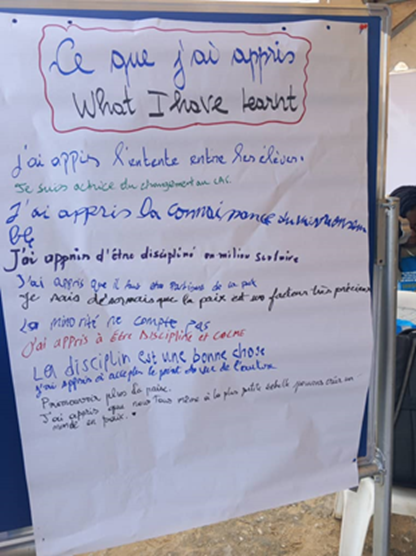 Ce que j'ai appris
What I have learnt
j'ai appris l'entente entre les élèves.
Je suis actrice du changement au
J'ai appris la connaissance du
ble
J'ai appris d'être discipliné en milieu scolaire
J'ai appris que il faut être de la paix
Je sais désormais que la paix est un facteur très précieux
La minorité ne compte pas
j'ai appris à être discipliné et calme
La disciplin est une bonne chose
j'ai appris à accepter le point de vue de l'autre
Promouvoir plus la paix.
J'ai appris que nous tous même à la plus petite échelle pouvons créer un
monde en paix.